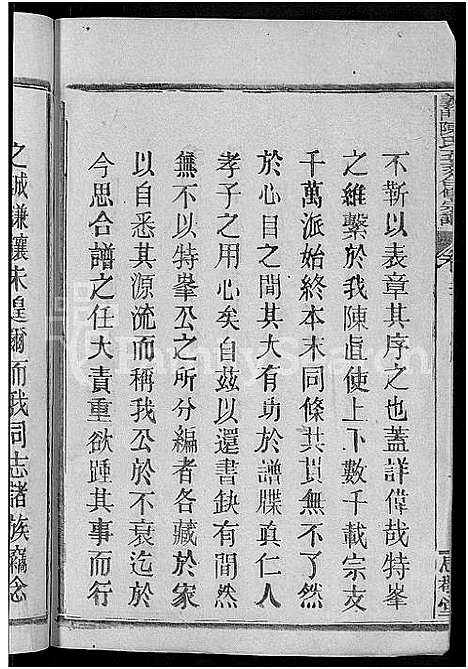 義門陳氏五系合修宗譜
不靳以表章其序之也蓋詳偉哉特峯
之維繫於我陳直使上下數千載宗支
千萬派始終本末同條共貫無不了然
於心目之間其大有功於譜牒眞仁人
孝子之用心矣自茲以還書缺有間然
無不以特峯公之所分編者各藏於家
以自悉其源流而稱我公於不衰迄於
今思合譜之任大責重欲踵其事而行
之誠謙讓未遑爾而我同志諸族竊念
FamilySearch